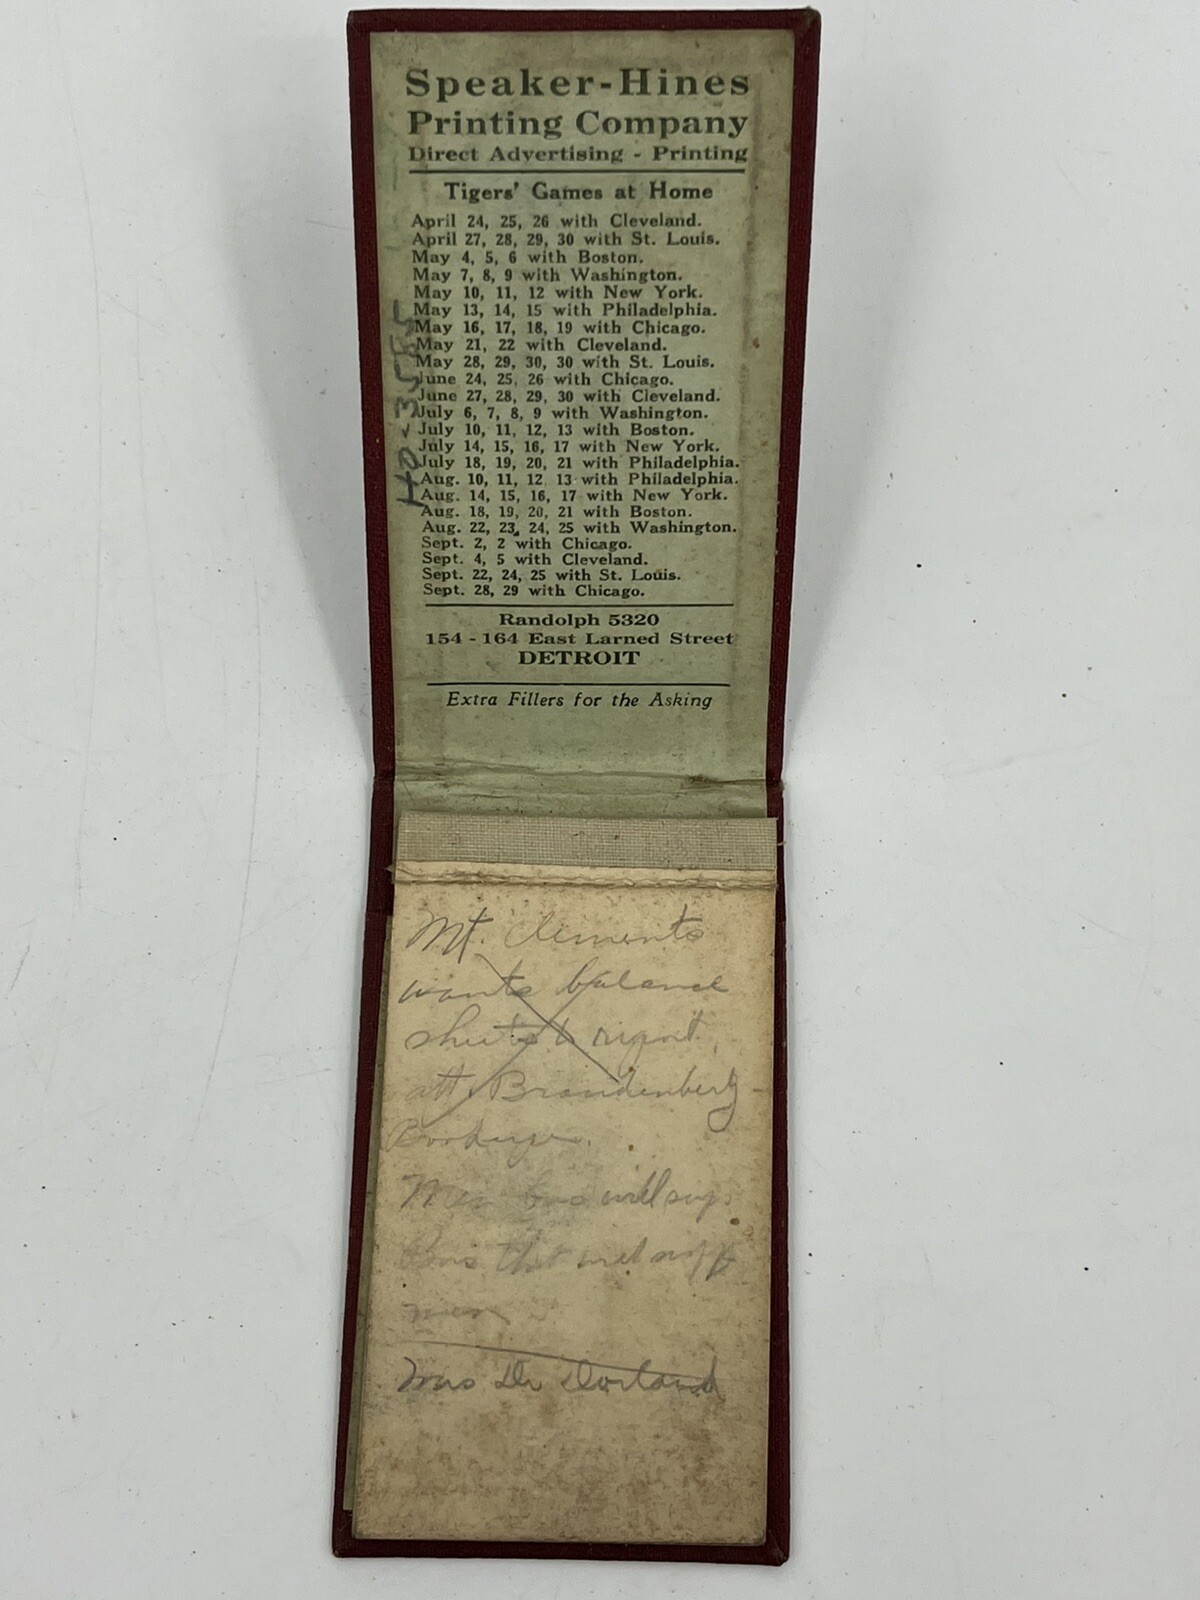 Speaker-Hines
Printing Company
Direct Advertising - Printing
Tigers' Games at Home
April 24, 25, 26 with Cleveland.
April 27, 28, 29, 30 with St. Louis.
May 4, 5, 6 with Boston.
May 7, 8, 9 with Washington.
May 10, 11, 12 with New York.
May 13, 14, 15 with Philadelphia.
May 16, 17, 18, 19 with Chicago.
May 21, 22 with Cleveland.
May 28, 29, 30, 30 with St. Louis.
June 24, 25, 26 with Chicago.
June 27, 28, 29, 30 with Cleveland.
July 6, 7, 8, 9 with Washington.
July 10, 11, 12, 13 with Boston.
July 14, 15, 16, 17 with New York.
July 18, 19, 20, 21 with Philadelphia.
Aug. 10, 11, 12, 13 with Philadelphia.
Aug. 14, 15, 16, 17 with New York.
Aug. 18, 19, 20, 21 with Boston.
Aug. 22, 23, 24, 25 with Washington.
Sept. 2, 2 with Chicago.
Sept. 4, 5 with Cleveland.
Sept. 22, 24, 25 with St. Louis.
Sept. 28, 29 with Chicago.
Randolph 5320
154 - 164 East Larned Street
DETROIT
Extra Fillers for the Asking
Mt. Clements
wants balance
sheets & report
att. Brandenberg
will
that
men
Mrs Dr Dorland